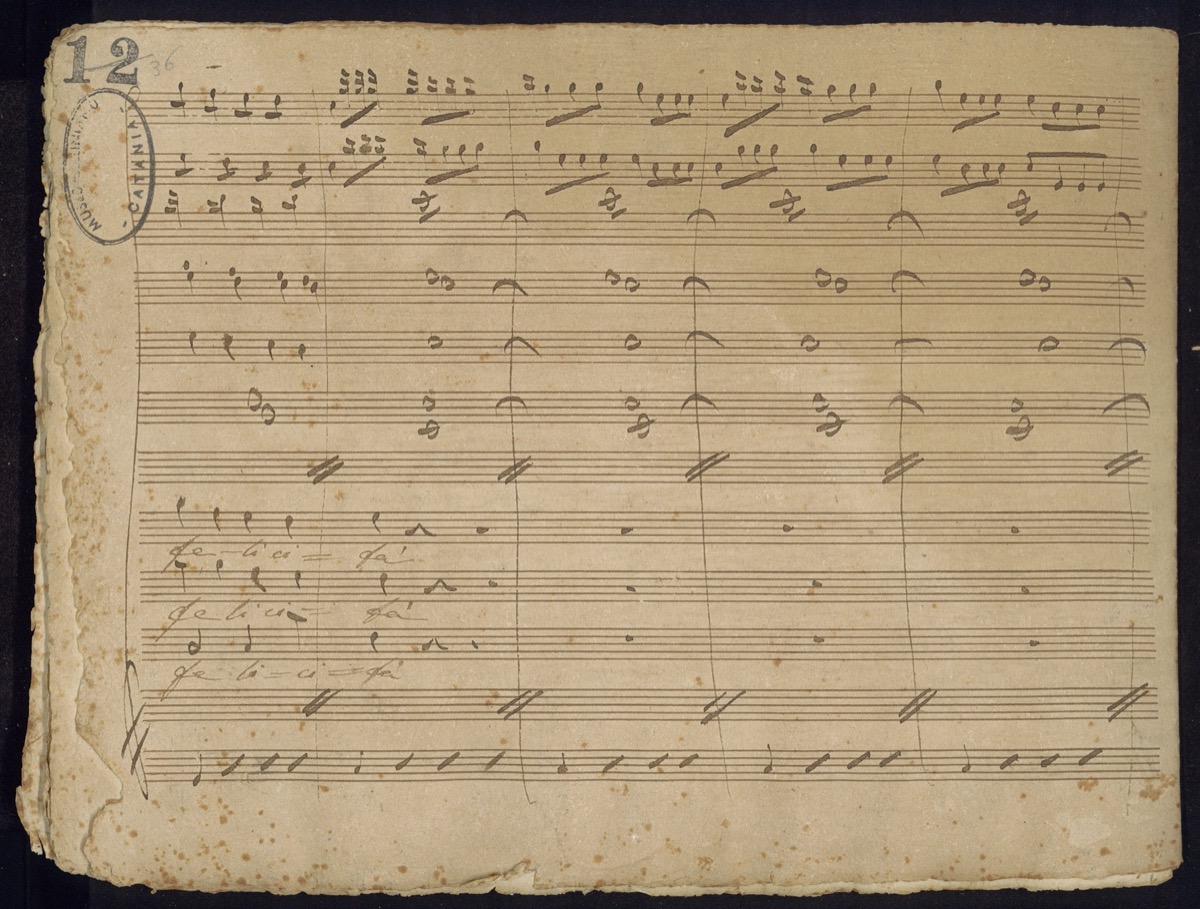 12
36
MUSEO
CATANIA
fe-lici=tà
felici=tà
fe-li-ci=tà